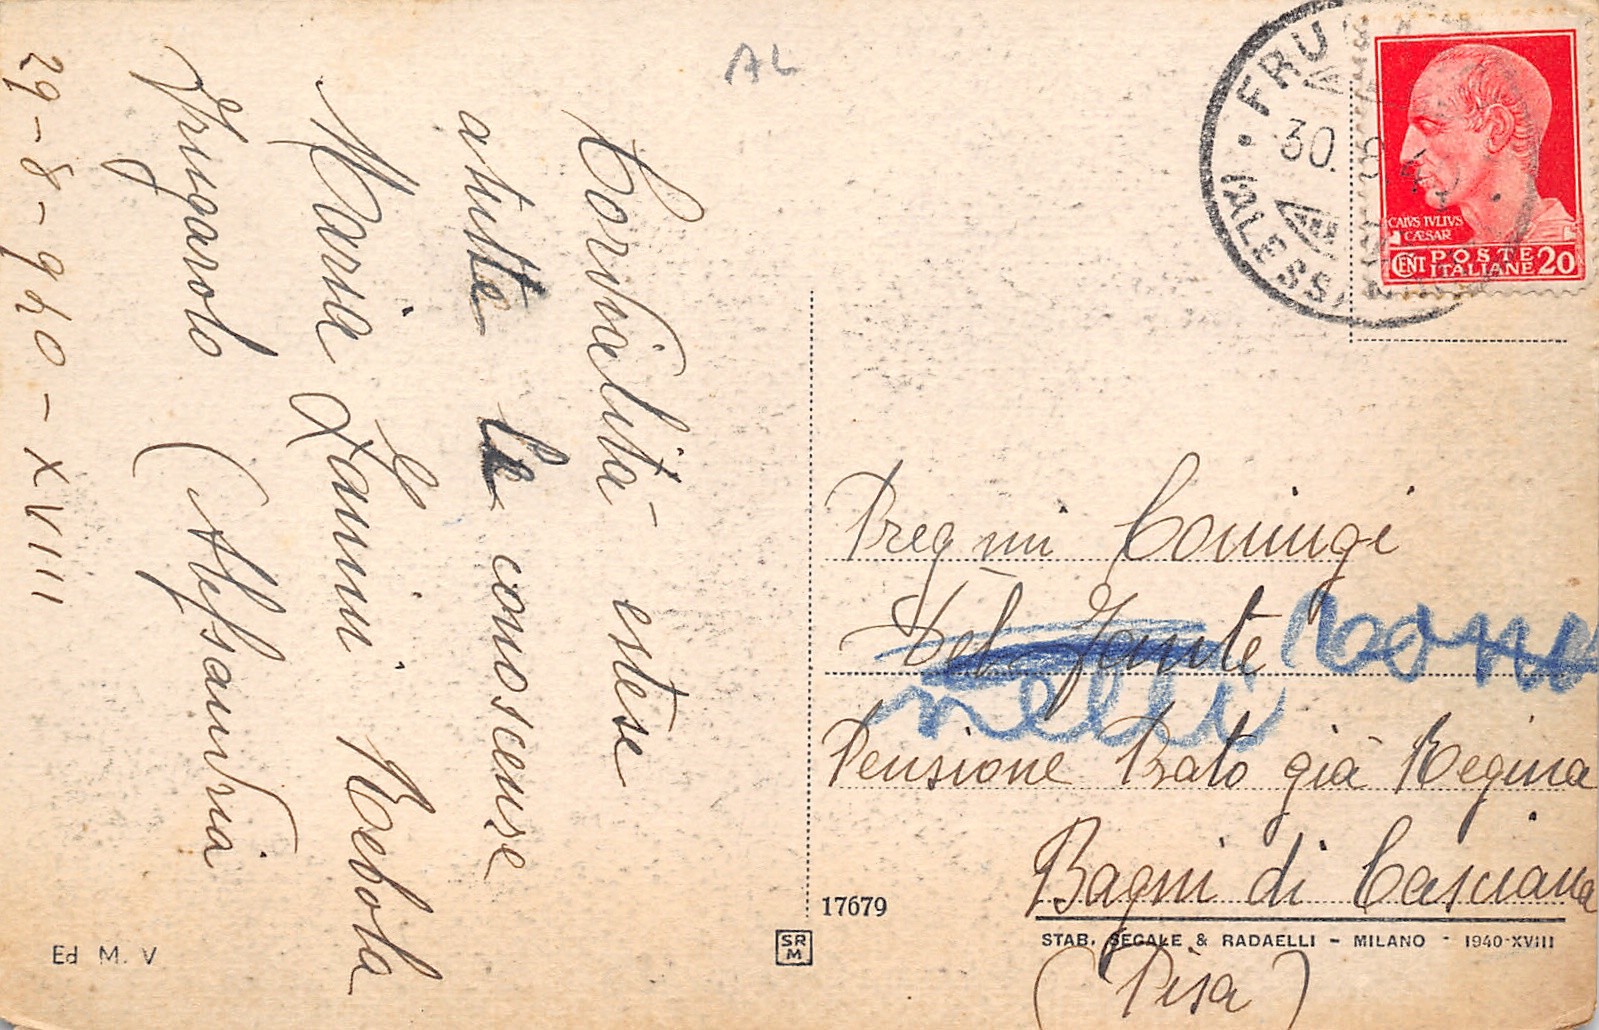 AL
Cordialità estese
a tutte le conoscenze
Maria Zanini Rebola
Frugarolo (Alessandria
29-8-940-XVIII
FRU
(ALESSA
30. 8 40
CAIVS IVLIVS
CÆSAR
CENT POSTE ITALIANE 20
Preg mi Coniugi
Del Fante
nelli
Pensione Prato già Regina
Bagni di Casciana
(Pisa)
17679
SR
M
STAB. SEGALE & RADAELLI - MILANO - 1940-XVIII
Ed M. V